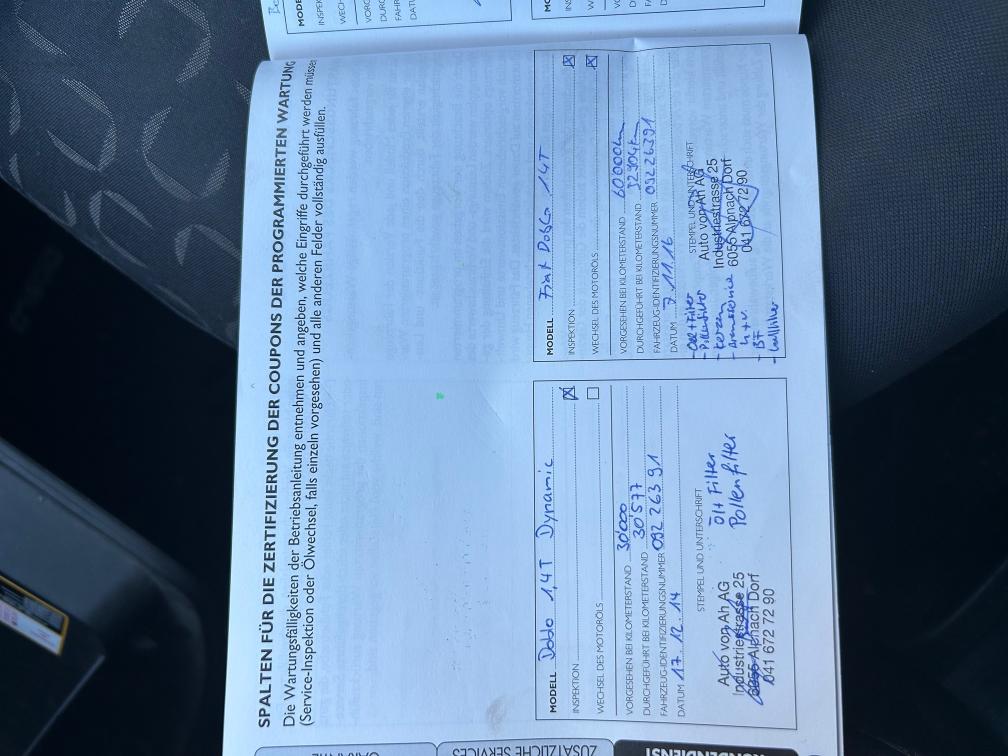 SPALTEN FÜR DIE ZERTIFIZIERUNG DER COUPONS DER PROGRAMMIERTEN WARTUNG
Die Wartungsfälligkeiten der Betriebsanleitung entnehmen und angeben, welche Eingriffe durchgeführt werden müssen
(Service-Inspektion oder Ölwechsel, falls einzeln vorgesehen) und alle anderen Felder vollständig ausfüllen.
MODELL Doblo 1,4T Dynamic
INSPEKTION ☒
WECHSEL DES MOTORÖLS ☐
VORGESEHEN BEI KILOMETERSTAND 30'000
DURCHGEFÜHRT BEI KILOMETERSTAND 30'577
FAHRZEUG-IDENTIFIZIERUNGSNUMMER 092 263 91
DATUM 17.12.14
STEMPEL UND UNTERSCHRIFT
Öl+Filter
Pollenfilter
Auto von Ah AG
Industriestrasse 25
6055 Alpnach Dorf
041 672 72 90
MODELL Fiat Doblo 1.4T
INSPEKTION ☒
WECHSEL DES MOTORÖLS ☒
VORGESEHEN BEI KILOMETERSTAND 60'000km
DURCHGEFÜHRT BEI KILOMETERSTAND
FAHRZEUG-IDENTIFIZIERUNGSNUMMER 09226391
DATUM 7.11.16
STEMPEL UND UNTERSCHRIFT
- Oel+Filter
- Pollenfilter
- Kerzen
h+v.
- BF
- Luftfilter
Auto von Ah AG
Industriestrasse 25
6055 Alpnach Dorf
041 672 72 90
ZUSÄTZLICHE SERVICES
KUNDENDIENST